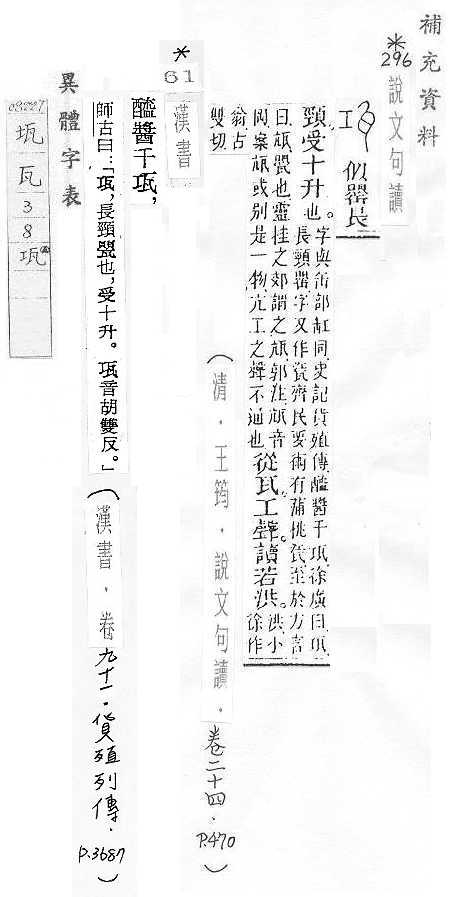 補充資料
*296 說文句讀
似罌長
頸受十升也。字與缶部缸同史記貨殖傳醯醬千瓨徐廣曰瓨
長頸罌字又作瓷齊民要術有蒲桃瓷至於方言
曰㼚甖也靈桂之郊謂之㼚郭注㼚音
岡案㼚或別是一物亢工之聲不通也
從瓦工聲。讀若洪。洪小
徐作
翁古
雙切
(清.王筠.說文句讀.卷二十四.P.470)
*61 漢書
醯醬千瓨,
師古曰:「瓨,長頸罌也,受十升。瓨音胡雙反。」(漢書.卷九十一.貨殖列傳.P.3687)
異體字表
瓦
3
8
瓨